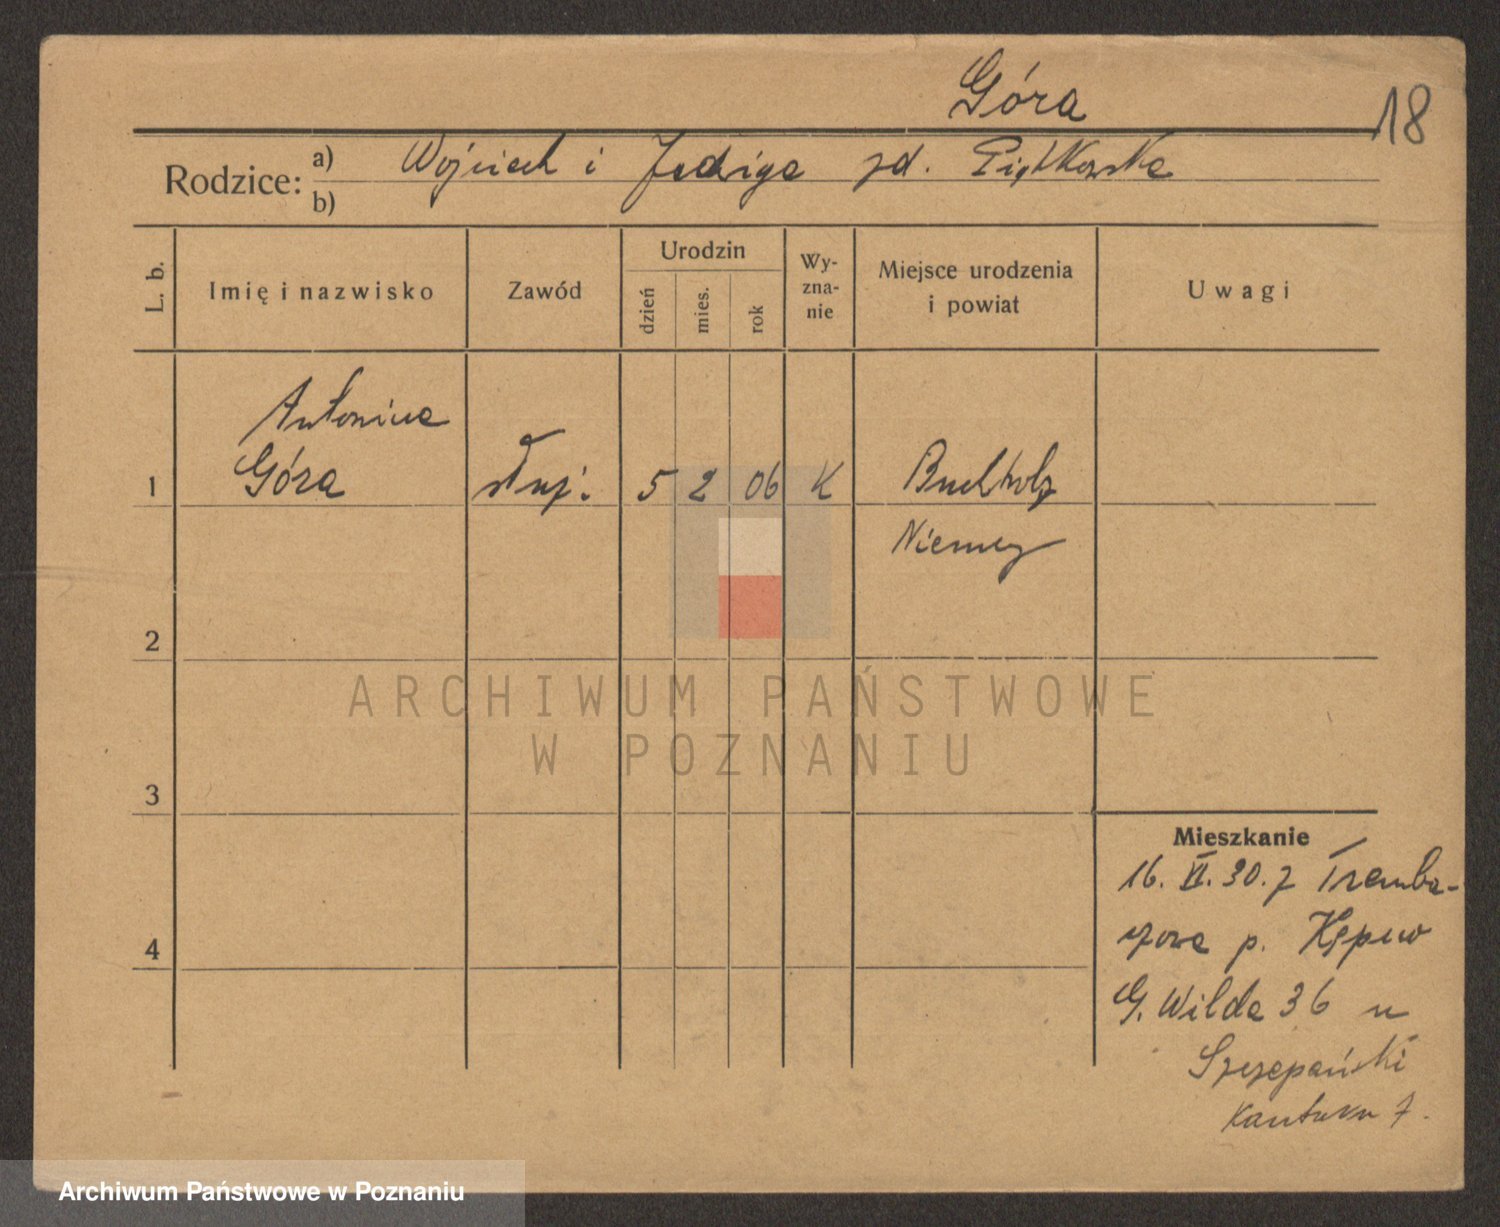 Góra
18
Rodzice: a) Wojciech i Jadwiga zd. Piątkowska
b)
L. b.
Imię i nazwisko
Zawód
Urodzin
dzień
mies.
rok
Wy-
zna-
nie
Miejsce urodzenia
i powiat
Uwagi
Antonina
1 Góra służ. 5 2 06 K Buchholz
Niemcy
2
ARCHIWUM PAŃSTWOWE
W POZNANIU
3
Mieszkanie
16. VI. 30. z Tremba-
czowa p. Kępno
4
G. Wilda 36 u
Szczepański
7.
Archiwum Państwowe w Poznaniu